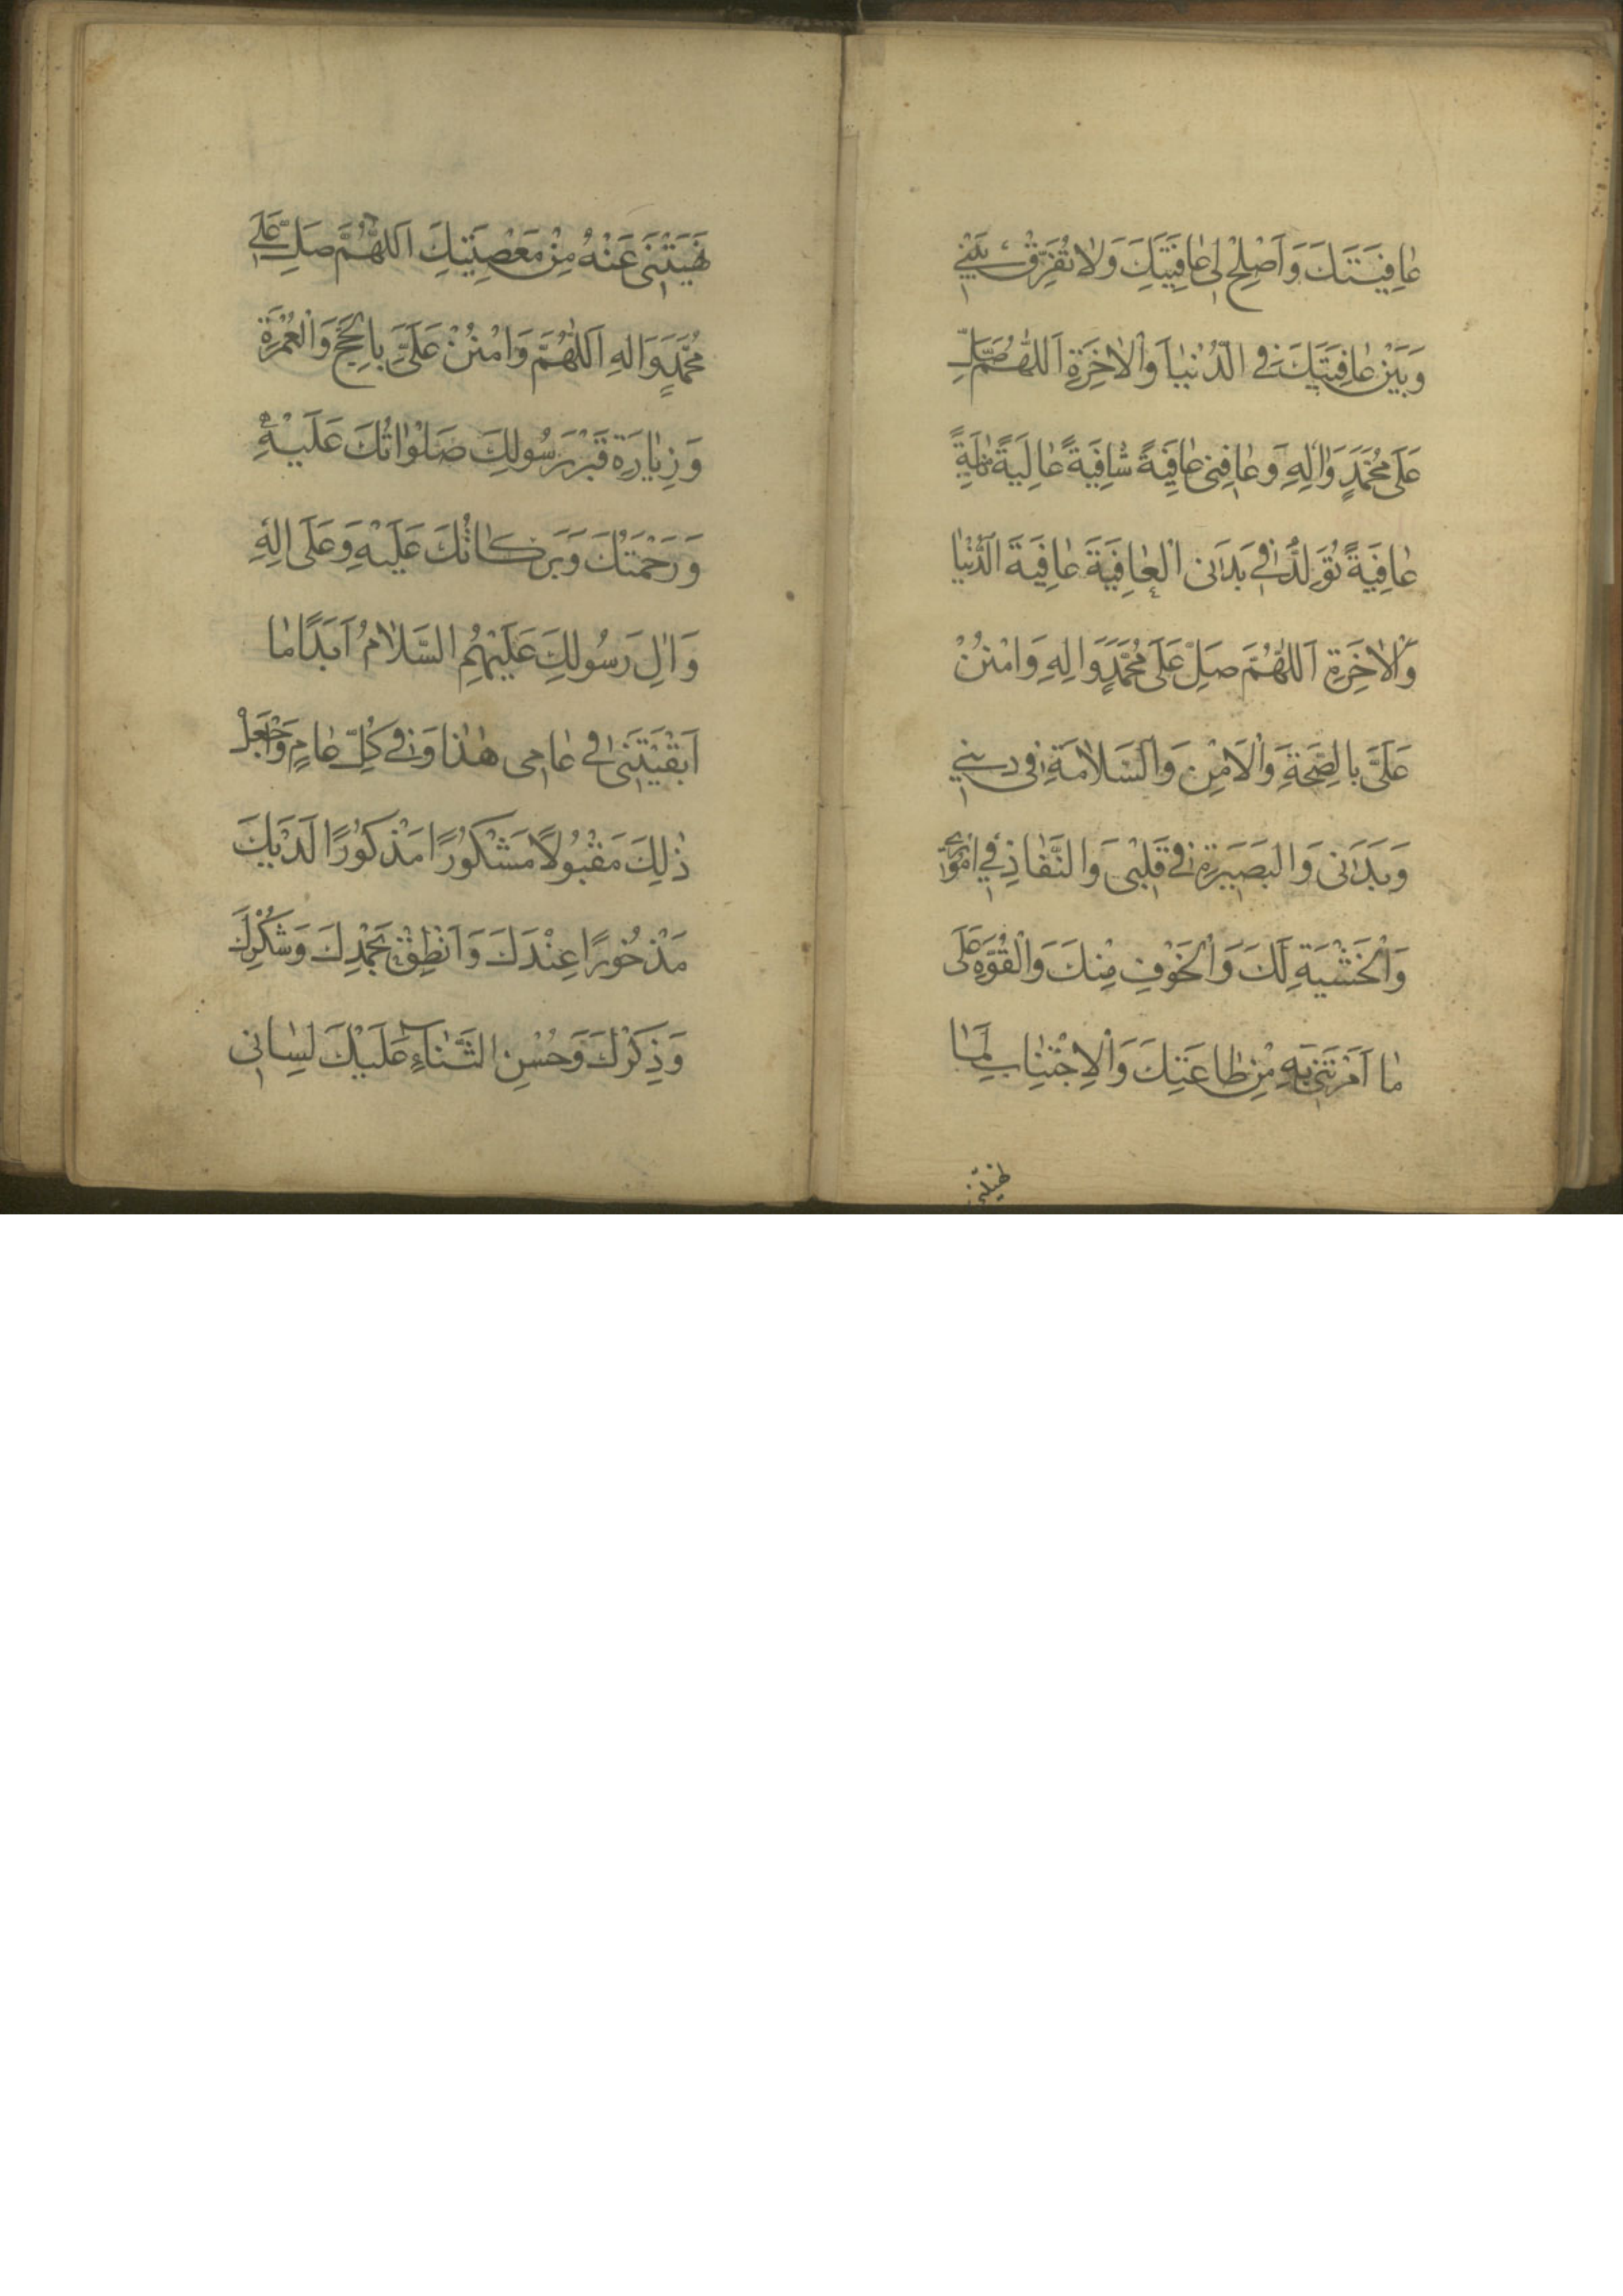 عَافِيَتَكَ وَاَصْلِحْ لِی عَافِيَتَكَ وَلَا تُفَرِّقْ بَيْنِي
وَبَيْنَ عَافِيَتِكَ فِي الدُّنْيَا وَالْاٰخِرَةِ اَللّٰهُمَّ صَلِّ
عَلٰى مُحَمَّدٍ وَاٰلِهِ وَعَافِنِی عَافِيَةً شَافِيَةً عَالِيَةً
عَافِيَةً تُوَلِّدُ فِي بَدَنِی الْعَافِيَةَ عَافِيَةَ الدُّنْيَا
وَالْاٰخِرَةِ اَللّٰهُمَّ صَلِّ عَلٰى مُحَمَّدٍ وَاٰلِهِ وَامْنُنْ
عَلَىَّ بِالصِّحَّةِ وَالْاَمْنِ وَالسَّلَامَةِ فِی دِينِي
وَبَدَنِی وَالْبَصِيرَةِ فِی قَلْبِی وَالنَّفَاذِ فِي اُمُورِي
وَالْخَشْيَةِ لَكَ وَالْخَوْفِ مِنْكَ وَالْقُوَّةِ عَلٰى
مَا اَمَرْتَنِی بِهِ مِنْ طَاعَتِكَ وَالْاِجْتِنَابِ لِمَا
نَهَيْتَنِی
نَهَيْتَنِی عَنْهُ مِنْ مَعْصِيَتِكَ اَللّٰهُمَّ صَلِّ عَلٰى
مُحَمَّدٍ وَاٰلِهِ اَللّٰهُمَّ وَامْنُنْ عَلَىَّ بِالْحَجِّ وَالْعُمْرَةِ
وَزِيَارَةِ قَبْرِ رَسُولِكَ صَلَوَاتُكَ عَلَيْهِ
وَرَحْمَتُكَ وَبَرَكَاتُكَ عَلَيْهِ وَعَلٰى اٰلِهِ
وَاٰلِ رَسُولِكَ عَلَيْهِمُ السَّلَامُ اَبَدًا مَا
اَبْقَيْتَنِی فِي عَامِی هٰذَا وَفِي كُلِّ عَامٍ وَاجْعَلْ
ذٰلِكَ مَقْبُولًا مَشْكُورًا مَذْكُورًا لَدَيْكَ
مَذْخُورًا عِنْدَكَ وَاَنْطِقْ بِحَمْدِكَ وَشُكْرِكَ
وَذِكْرِكَ وَحُسْنِ الثَّنَاءِ عَلَيْكَ لِسَانِی